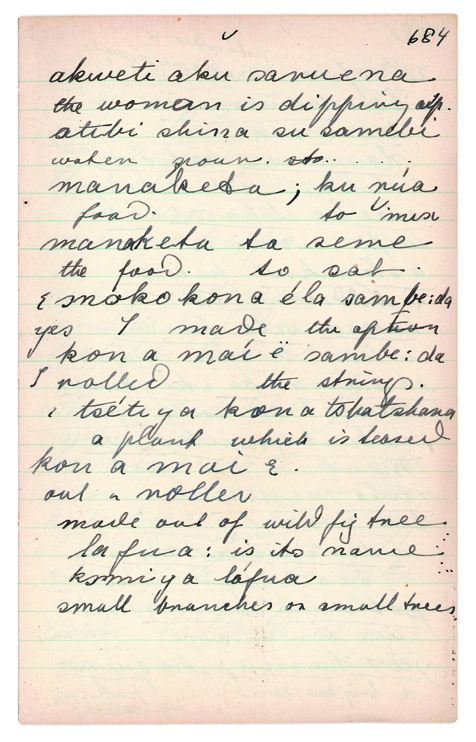 684
akweti aku savuena
the woman is dipping up.
atubi shina su sambi
water pour. sto.. . .
manaketa; ku núa
food. to mix
manaketa ta seme
the food. to eat.
ɛ moko kona éla sambe:da
yes I made the aption
kon a mai ë sambe:da
I rolled the strings.
i tséti ya kona tobatshana
a plant which is teased
kon a mai ɛ.
out a roller
made out of wild fig tree
lafua: is its name
komi ya láfua
small branches on small trees